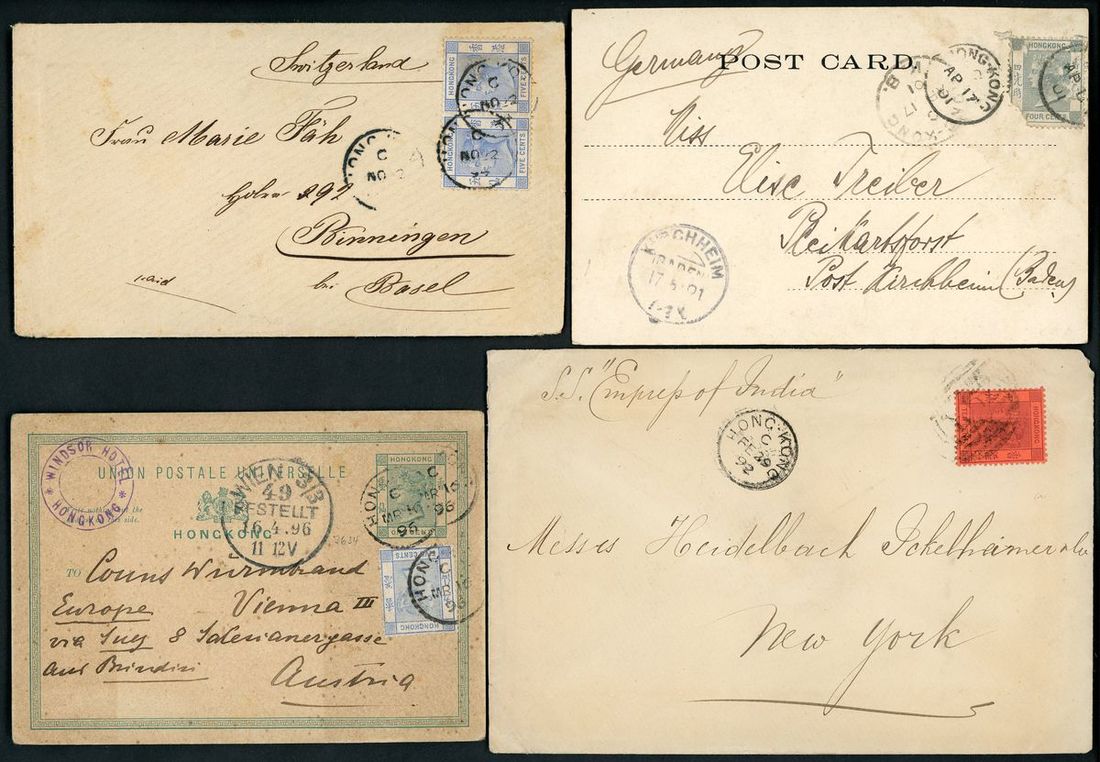 Switzerland
Frau Marie Fäh
292
Binningen
bei Basel
HONGKONG
FIVE CENTS
HONGKONG
FIVE CENTS
HONG
C
NO
Germany
POST CARD.
Miss
Elise Treiber
Post Kirchheim (Baden)
HONG-KONG
AP 17
01
HONGKONG
FOUR CENTS
KIRCHHEIM
(BADEN)
WINDSOR HOTEL
HONGKONG
UNION POSTALE UNIVERSELLE
HONGKONG
WIEN 3/3
49
BESTELLT
16.4.96
11 12V
3634
HONGKONG
C
MR 16
96
C
MR 16
96
HONGKONG
TO Couns Wurmbrand
Europe Vienna III
via Suez 8 Salesianergasse
and Brindisi
Austria
S.S. "Empress of India"
HONG-KONG
C
FE 29
92
HONGKONG
Messrs Heidelbach Ickelheimer & Co
New York